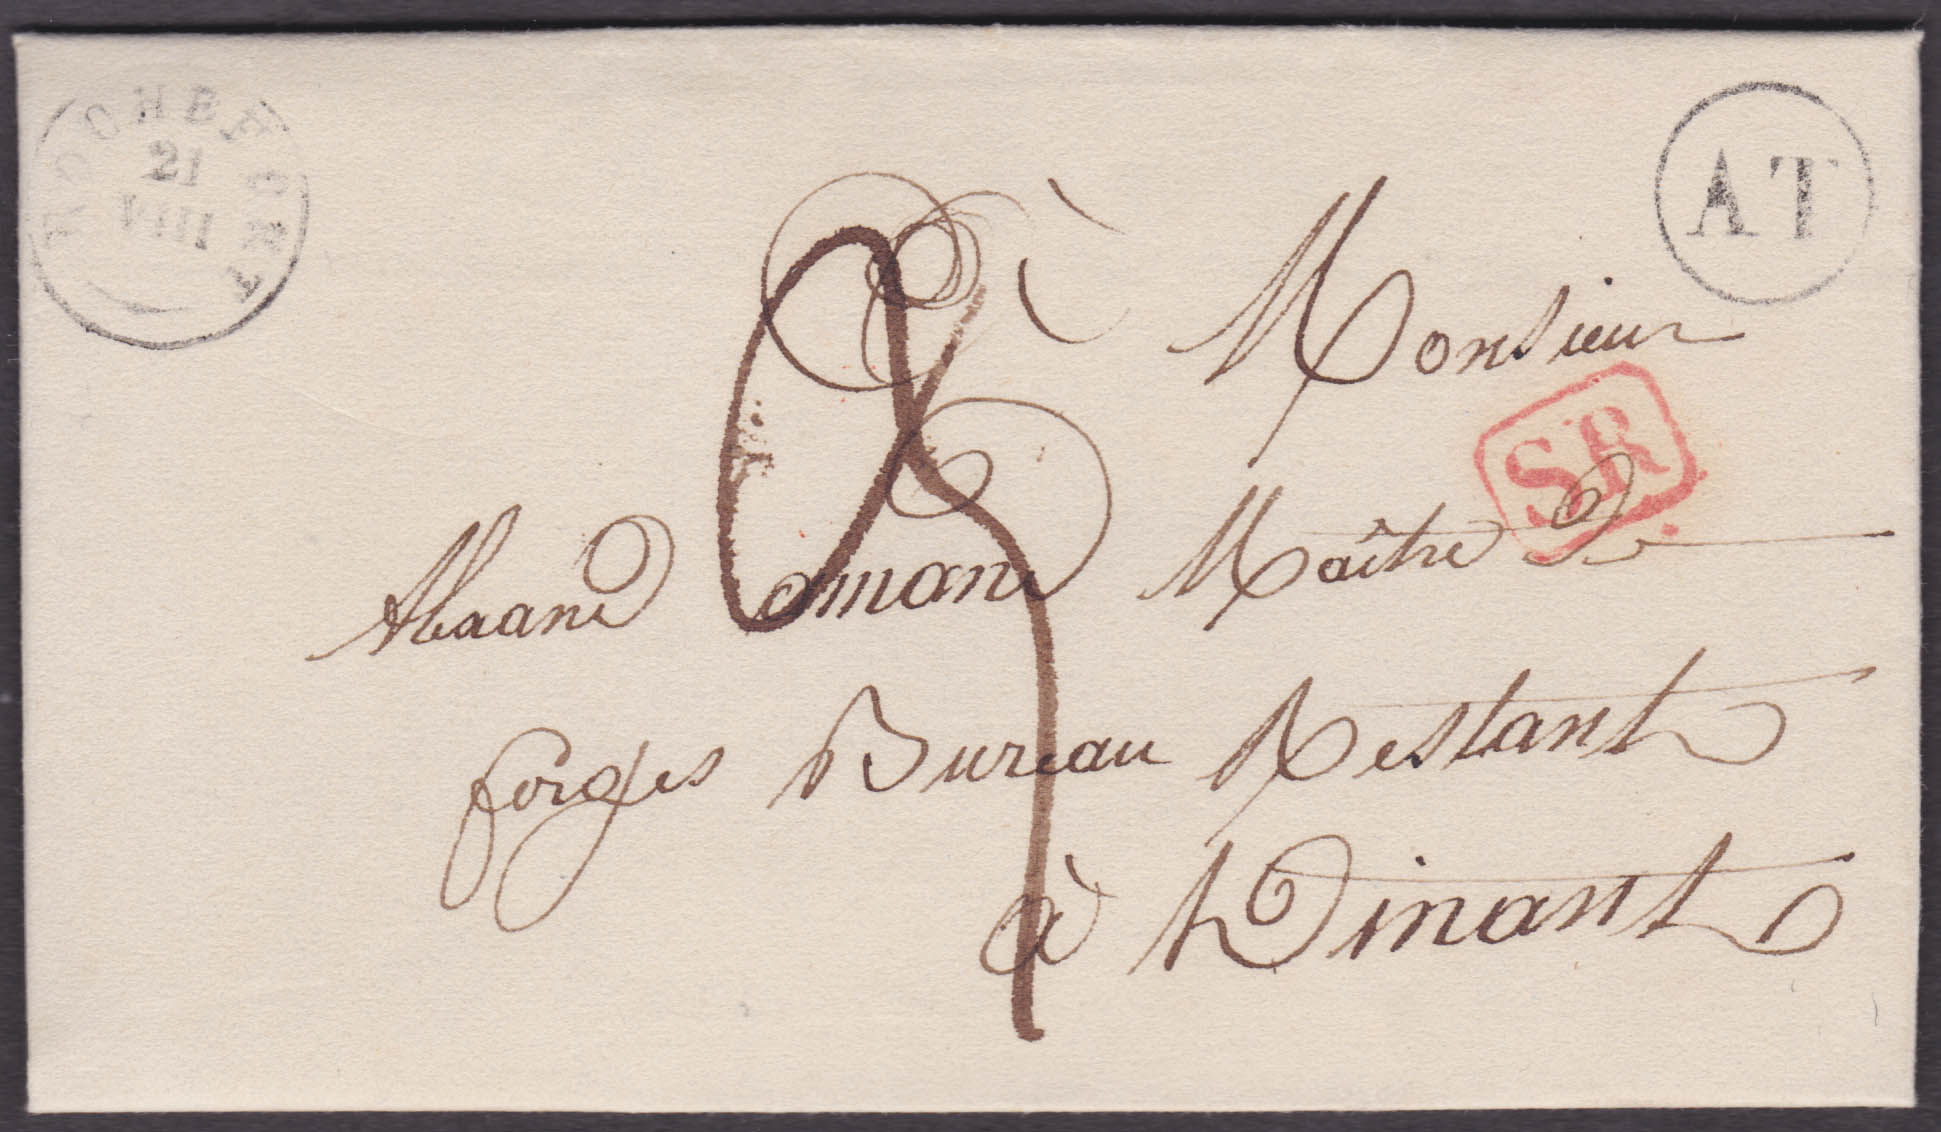 ROCHEFORT
21
VIII
AT
à Monsieur
SR
amand Maître de
forges Bureau Restant
à Dinant